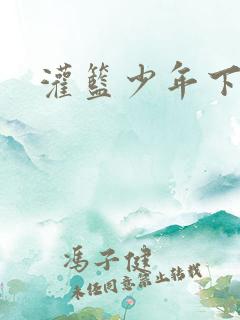 灌籃少年下
馮子健
未经同意禁止转载